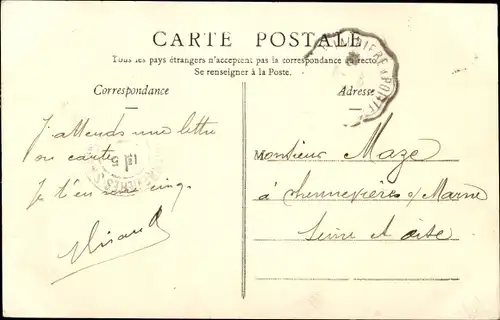 CARTE POSTALE
Tous les pays étrangers n'acceptent pas la correspondance au recto.
Se renseigner à la Poste.
Correspondance
Adresse
J'attends une lettre
ou carte
Je t'en cinq
Monsieur Maze
à Chennevières s/ Marne
Seine et Oise